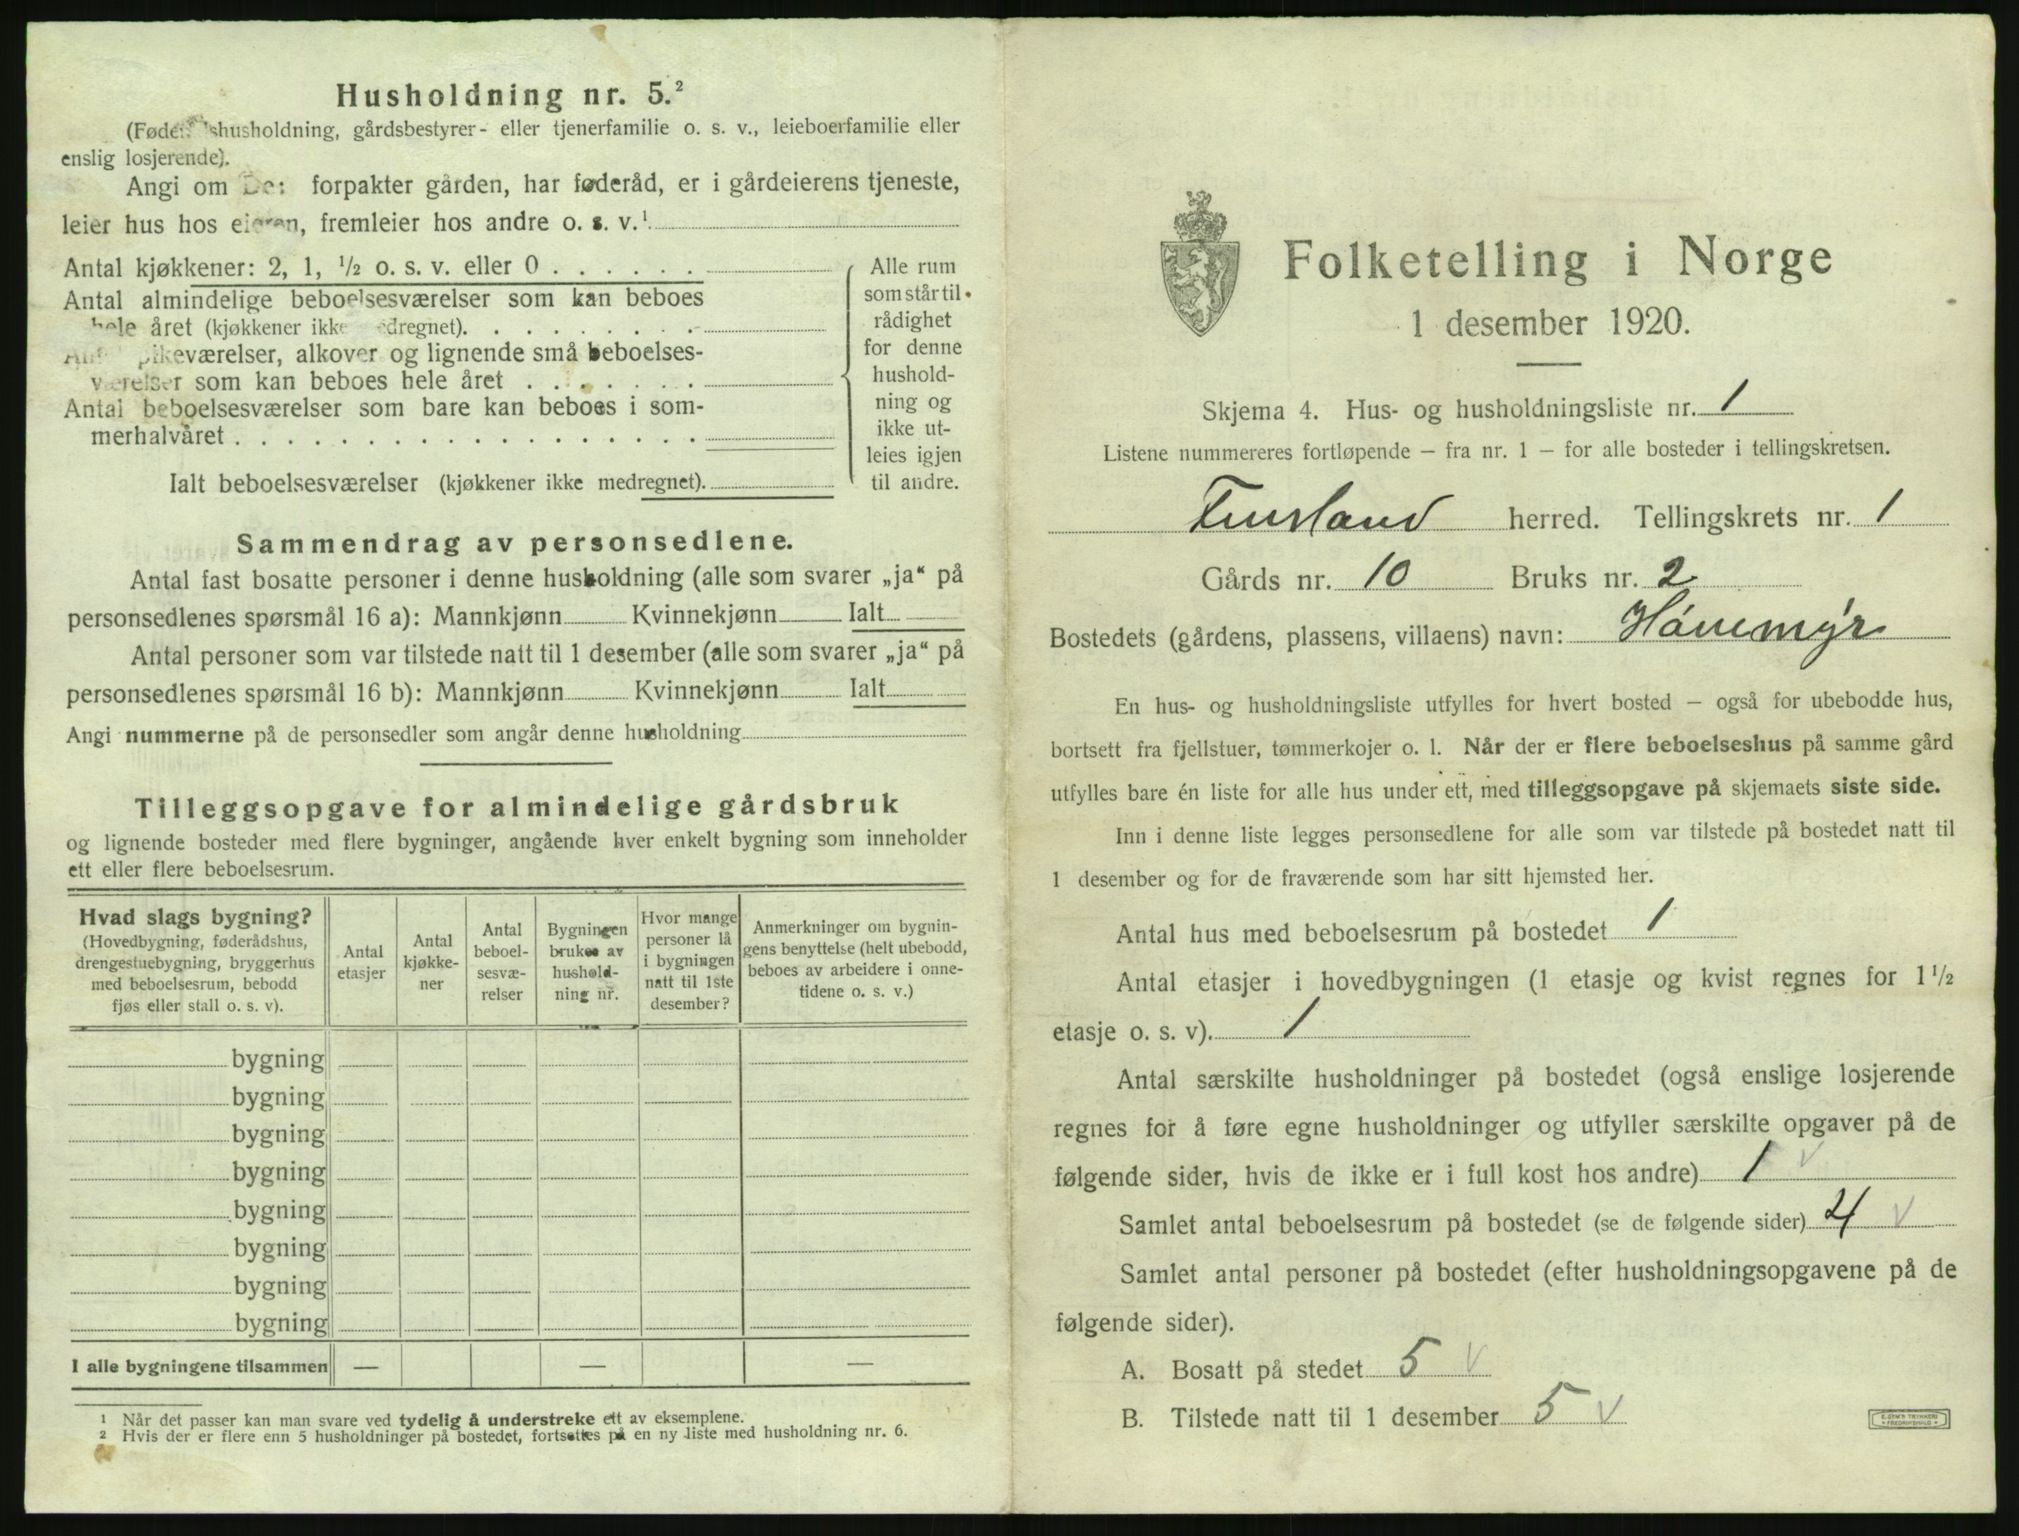 Husholdning nr. 5.²
(Føderådshusholdning, gårdsbestyrer- eller tjenerfamilie o. s. v., leieboerfamilie eller
enslig losjerende).
Angi om De: forpakter gården, har føderåd, er i gårdeierens tjeneste,
leier hus hos eieren, fremleier hos andre o. s. v.¹
Antal kjøkkener: 2, 1, ½ o. s. v. eller 0 . . . . . .
Antal almindelige beboelsesværelser som kan beboes
hele året (kjøkkener ikke medregnet). . . . . . . . .
Antal pikeværelser, alkover og lignende små beboelses-
værelser som kan beboes hele året . . . . . . .
Antal beboelsesværelser som bare kan beboes i som-
merhalvåret . . . . . . . . . . . . . . . . . .
Ialt beboelsesværelser (kjøkkener ikke medregnet).
Alle rum
som står til
rådighet
for denne
hushold-
ning og
ikke ut-
leies igjen
til andre.
Sammendrag av personsedlene.
Antal fast bosatte personer i denne husholdning (alle som svarer „ja“ på
personsedlenes spørsmål 16 a): Mannkjønn Kvinnekjønn Ialt
Antal personer som var tilstede natt til 1 desember (alle som svarer „ja“ på
personsedlenes spørsmål 16 b): Mannkjønn Kvinnekjønn Ialt
Angi nummerne på de personsedler som angår denne husholdning
Tilleggsopgave for almindelige gårdsbruk
og lignende bosteder med flere bygninger, angående hver enkelt bygning som inneholder
ett eller flere beboelsesrum.
Hvad slags bygning?
(Hovedbygning, føderådshus,
drengestuebygning, bryggerhus
med beboelsesrum, bebodd
fjøs eller stall o. s. v).
Antal
etasjer
Antal
kjøkke-
ner
Antal
beboel-
sesvæ-
relser
Bygningen
brukes av
hushold-
ning nr.
Hvor mange
personer lå
i bygningen
natt til 1ste
desember?
Anmerkninger om bygnin-
gens benyttelse (helt ubebodd,
beboes av arbeidere i onne-
tidene o. s. v.)
bygning
bygning
bygning
bygning
bygning
bygning
bygning
bygning
I alle bygningene tilsammen — — —
¹ Når det passer kan man svare ved tydelig å understreke ett av eksemplene.
² Hvis der er flere enn 5 husholdninger på bostedet, fortsettes på en ny liste med husholdning nr. 6.
Folketelling i Norge
1 desember 1920.
Skjema 4. Hus- og husholdningsliste nr. 1
Listene nummereres fortløpende – fra nr. 1 – for alle bosteder i tellingskretsen.
Finsland herred. Tellingskrets nr. 1
Gårds nr. 10 Bruks nr. 2
Bostedets (gårdens, plassens, villaens) navn: Hónemyr
En hus- og husholdningsliste utfylles for hvert bosted – også for ubebodde hus,
bortsett fra fjellstuer, tømmerkojer o. l. Når der er flere beboelseshus på samme gård
utfylles bare én liste for alle hus under ett, med tilleggsopgave på skjemaets siste side.
Inn i denne liste legges personsedlene for alle som var tilstede på bostedet natt til
1 desember og for de fraværende som har sitt hjemsted her.
Antal hus med beboelsesrum på bostedet 1
Antal etasjer i hovedbygningen (1 etasje og kvist regnes for 1½
etasje o. s. v). 1
Antal særskilte husholdninger på bostedet (også enslige losjerende
regnes for å føre egne husholdninger og utfyller særskilte opgaver på de
følgende sider, hvis de ikke er i full kost hos andre) 1 v
Samlet antal beboelsesrum på bostedet (se de følgende sider) 4 v
Samlet antal personer på bostedet (efter husholdningsopgavene på de
følgende sider).
A. Bosatt på stedet 5 v
B. Tilstede natt til 1 desember 5 v